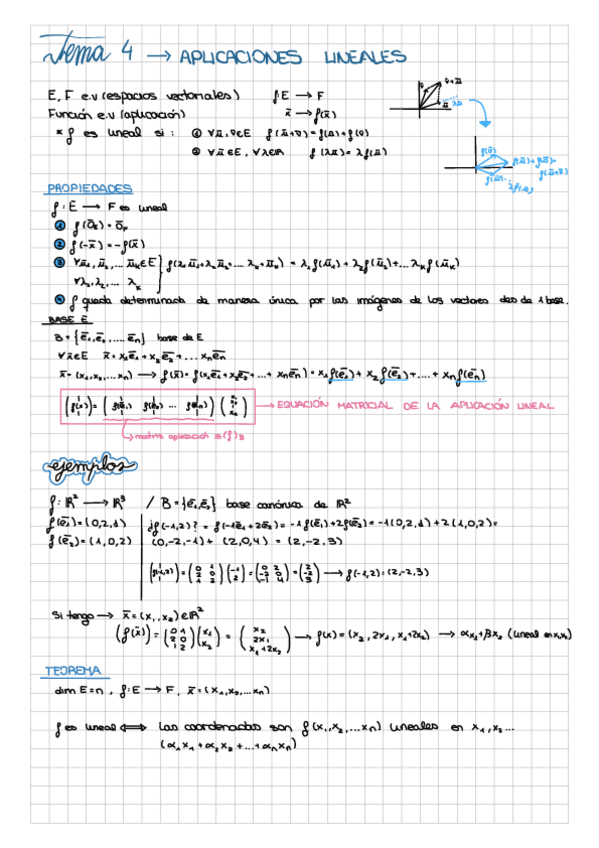 Tema 4 → APLICACIONES LINEALES
E, F e.v (espacios vectoriales) f: E → F
Función e.v (aplicación) x̄ → f(x̄)
* f es lineal si : ① ∀ū, v̄ ∈ E f(ū+v̄) = f(ū) + f(v̄)
② ∀ū ∈ E, ∀λ ∈ ℝ f(λū) = λf(ū)
PROPIEDADES
f : E → F es lineal
① f(Ō_E) = Ō_F
② f(-x̄) = -f(x̄)
③ ∀ū₁, ū₂, ... ū_K ∈ E } f(λ₁ū₁ + λ₂ū₂ + ... λ_K + ū_K) = λ₁f(ū₁) + λ₂f(ū₂) + ... λ_K f(ū_K)
∀λ₁, λ₂, ... λ_K
f queda determinada de manera única por las imágenes de los vectores de 1 base.
BASE E
B = {ē₁, ē₂, .... ēn} base de E
∀x̄ ∈ E x̄ = x₁ē₁ + x₂ē₂ + ... xnēn
x̄ = (x₁, x₂, ... xn) → f(x̄) = f(x₁ē₁ + x₂ē₂ + ... + xnēn) = x₁f(ē₁) + x₂f(ē₂) + .... + xnf(ēn)
(f(x̄)) = (f(ē₁) f(ē₂) ... f(ēn)) (x₁ x₂ ⋮ xn) → EQUACIÓN MATRICIAL DE LA APLICACIÓN LINEAL
→ matriz aplicación B(f)B
ejemplos
f: ℝ² → ℝ³ / B = {ē₁, ē₂} base canónica de ℝ²
f(ē₁) = (0,2,1) ¿f(-1,2)? = f(-1ē₁ + 2ē₂) = -1f(ē₁) + 2f(ē₂) = -1(0,2,1) + 2(1,0,2) =
f(ē₂) = (1,0,2) (0,-2,-1) + (2,0,4) = (2,-2,3)
(f(-1,2)) = (0 1 / 2 0 / 1 2) (-1 / 2) = (0 2 / -2 0 / -1 4) = (2 / -2 / 3) → f(-1,2) = (2,-2,3)
Si tengo → x̄ = (x₁, x₂) ∈ ℝ²
(f(x̄)) = (0 1 / 2 0 / 1 2) (x₁ / x₂) = (x₂ / 2x₁ / x₁+2x₂) → f(x) = (x₂, 2x₁, x₁+2x₂) → αx₁+βx₂ (lineal en x₁x₂)
TEOREMA
dim E = n , f: E → F, x̄ = (x₁, x₂, ... xn)
f es lineal ⟺ las coordenadas son f(x₁, x₂, ... xn) lineales en x₁, x₂ ...
(α₁x₁ + α₂x₂ + ... + αnxn)